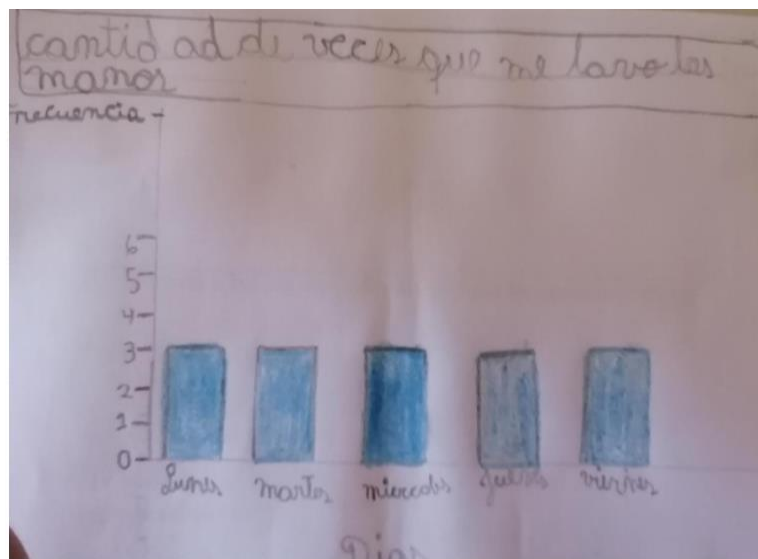 cantidad de veces que me lavo las
manos
Frecuencia
6
5
4
3
2
1
0
Lunes
martes
miercoles
jueves
viernes
Dias